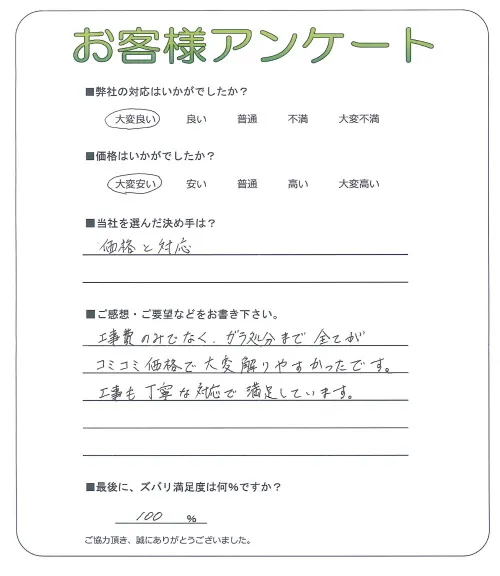 お客様アンケート
■弊社の対応はいかがでしたか？
大変良い 良い 普通 不満 大変不満
■価格はいかがでしたか？
大変安い 安い 普通 高い 大変高い
■当社を選んだ決め手は？
価格と対応
■ご感想・ご要望などをお書き下さい。
工事費のみでなく、ガラ処分まで全てが
コミコミ価格で大変解りやすかったです。
工事も丁寧な対応で満足しています。
■最後に、ズバリ満足度は何%ですか？
100 %
ご協力頂き、誠にありがとうございました。